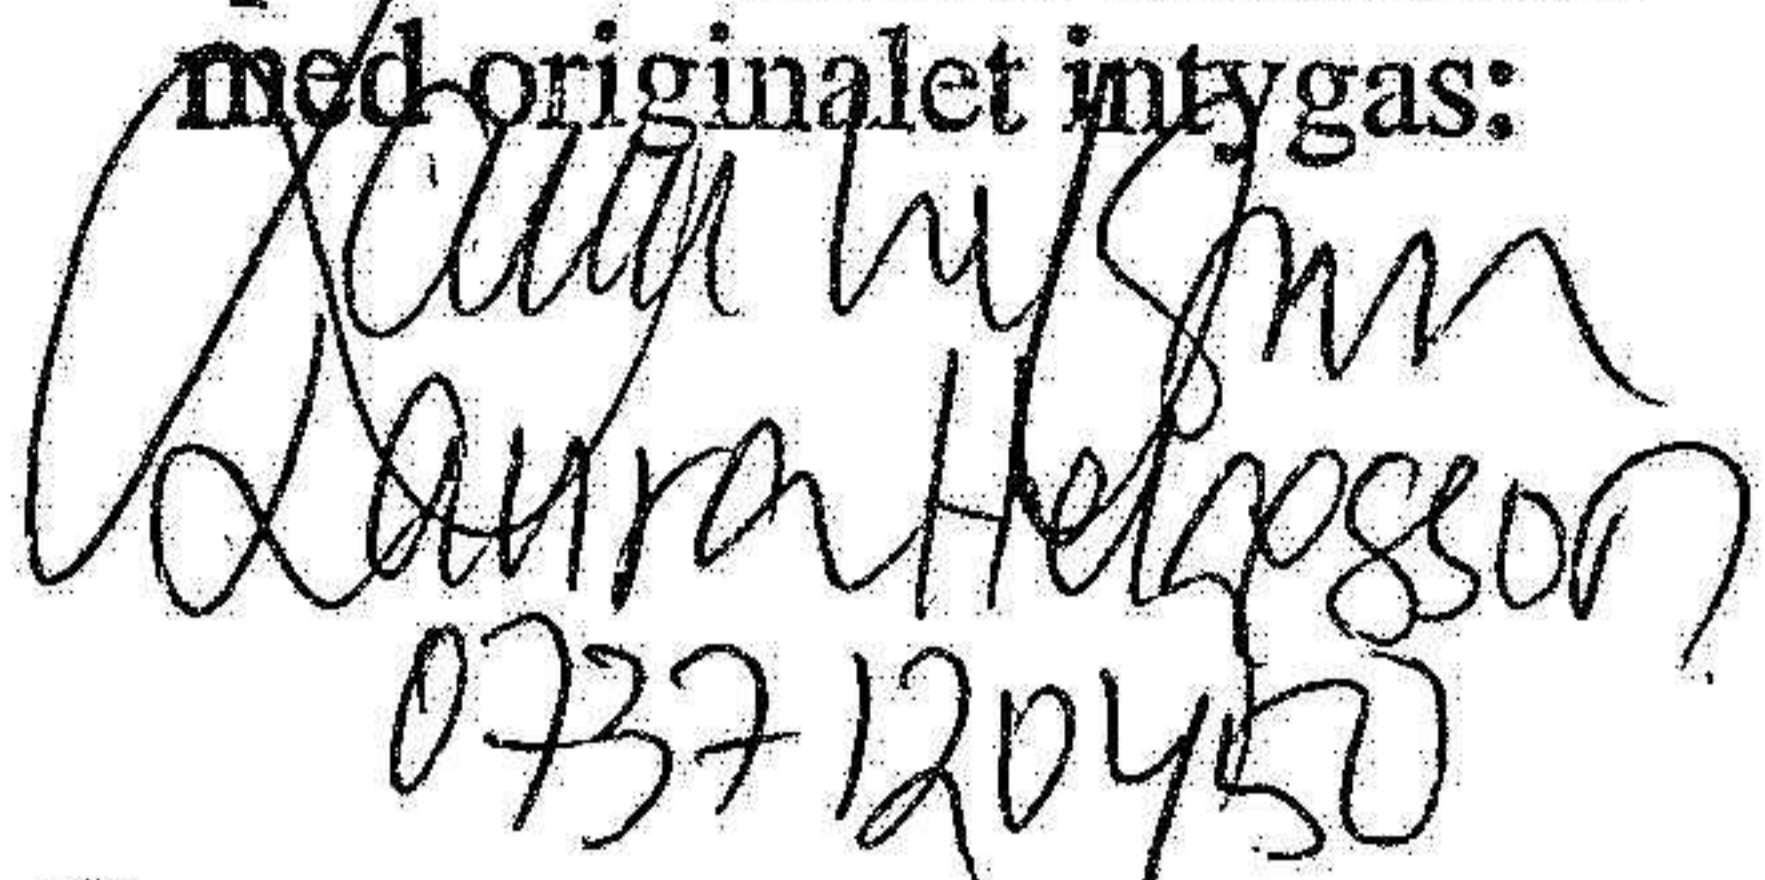 med originalet intygas:
Laura Helgosson
0737 120450